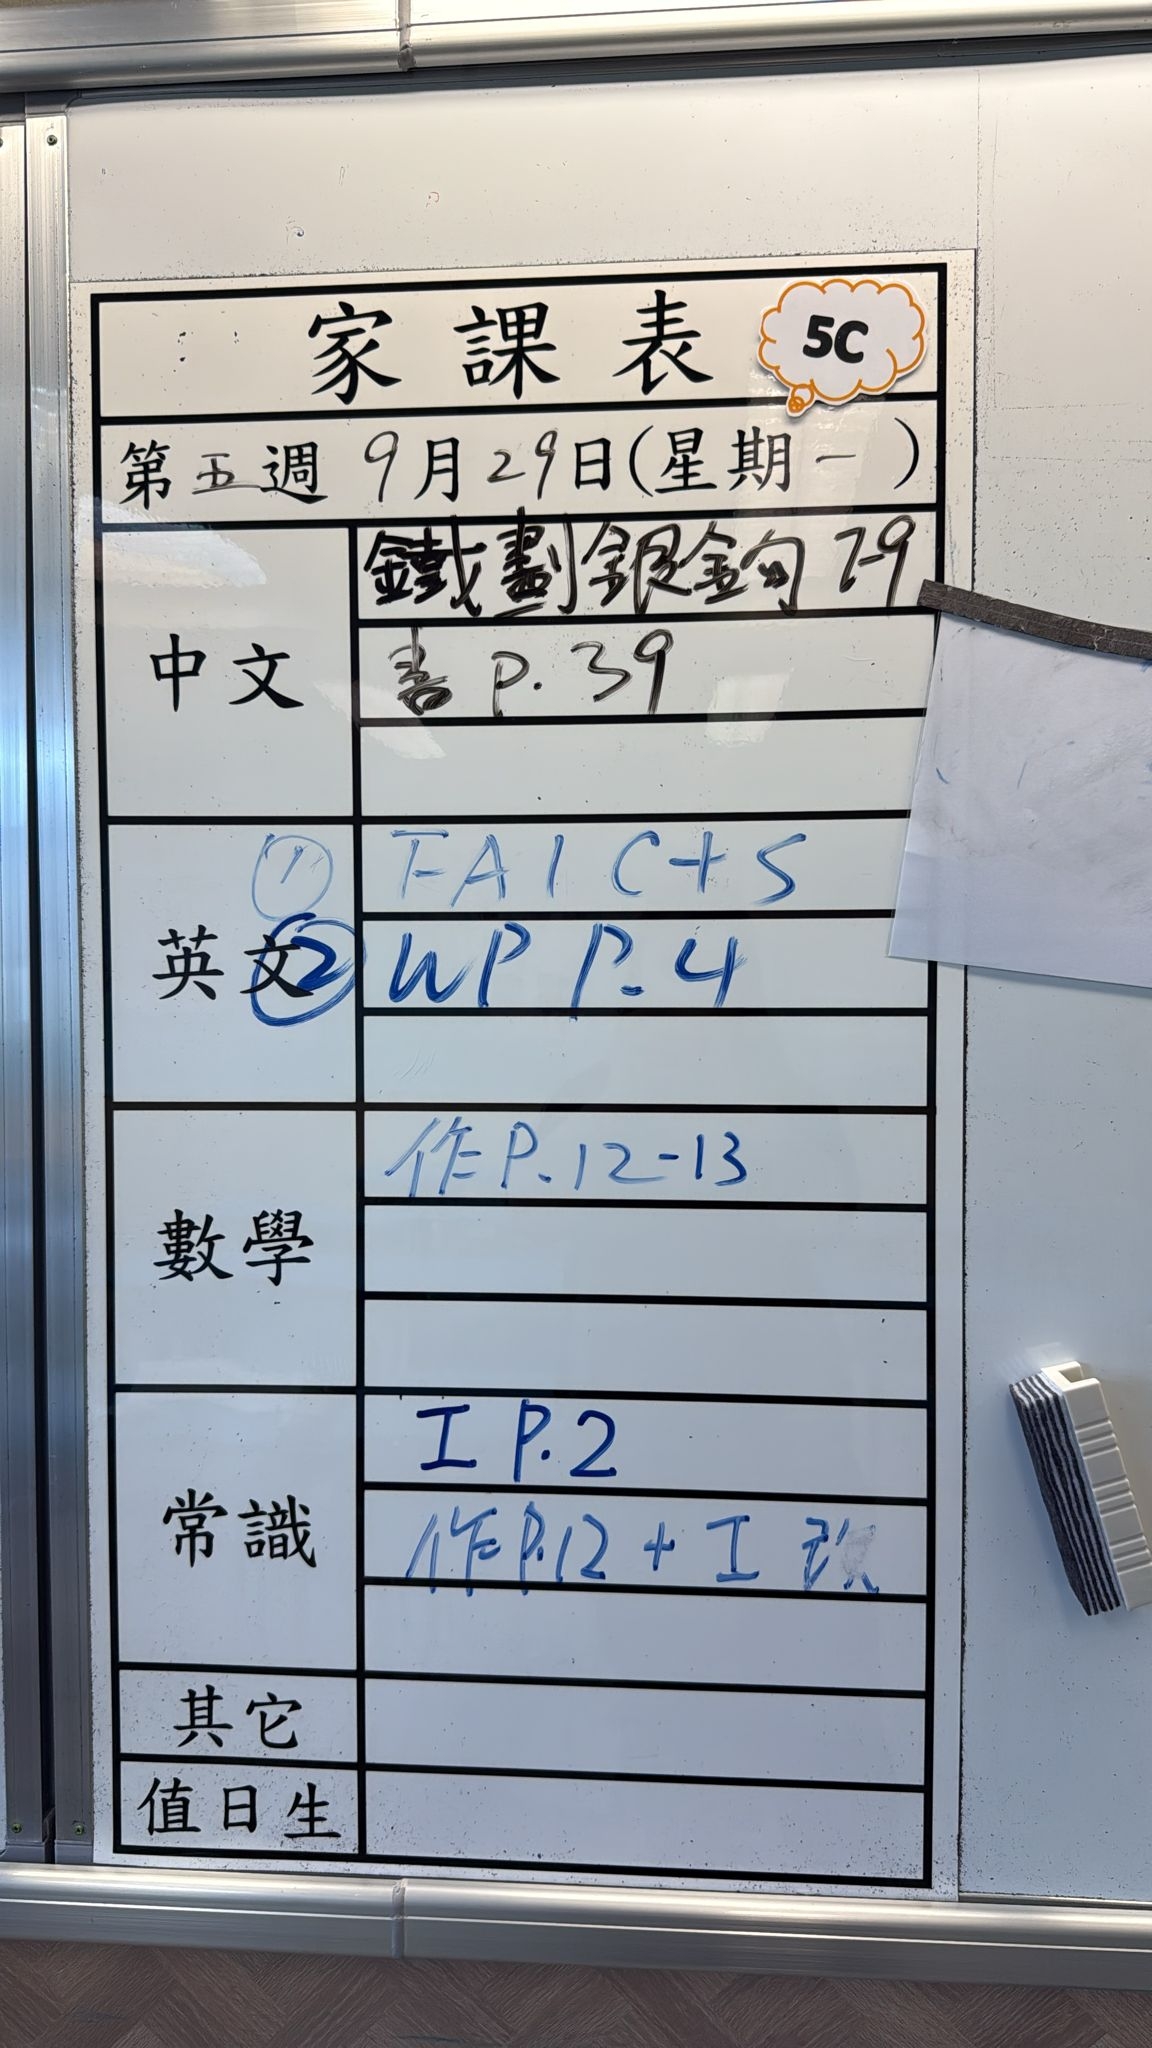 家課表 5C
第五週 9月29日(星期一)
中文
鐵劃銀鈎 7-9
書 P.39
英文
① FA1 C+S
② WP P.4
數學
作P.12-13
常識
I P.2
作P.12 + I 改
其它
值日生